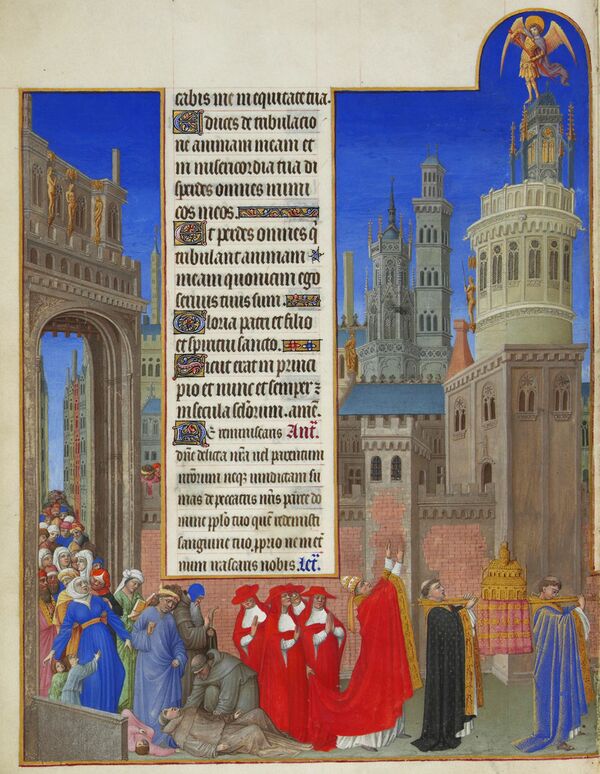 cabis me in equitate tua.
Educes de tribulacio
ne animam meam et
in misericordia tua di
sperdes omnes inimi
cos meos.
Et perdes omnes q̄
tribulant animam
meam quoniam ego
seruus tuus sum.
Gloria patri et filio
et spiritui sancto.
Sicut erat in princi
pio et nunc et semper ⁊
in secula sc̄lorum. amē.
Ne reminiscaris Ant̄.
dn̄e delicta nr̄a vel parentum
nr̄orum neqꝫ vindictam su
mas de peccatis nr̄is parce do
mine pp̄lo tuo quē redemisti
sanguine tuo ꝓprio ne in et̄
num irascaris nobis. Let̄.